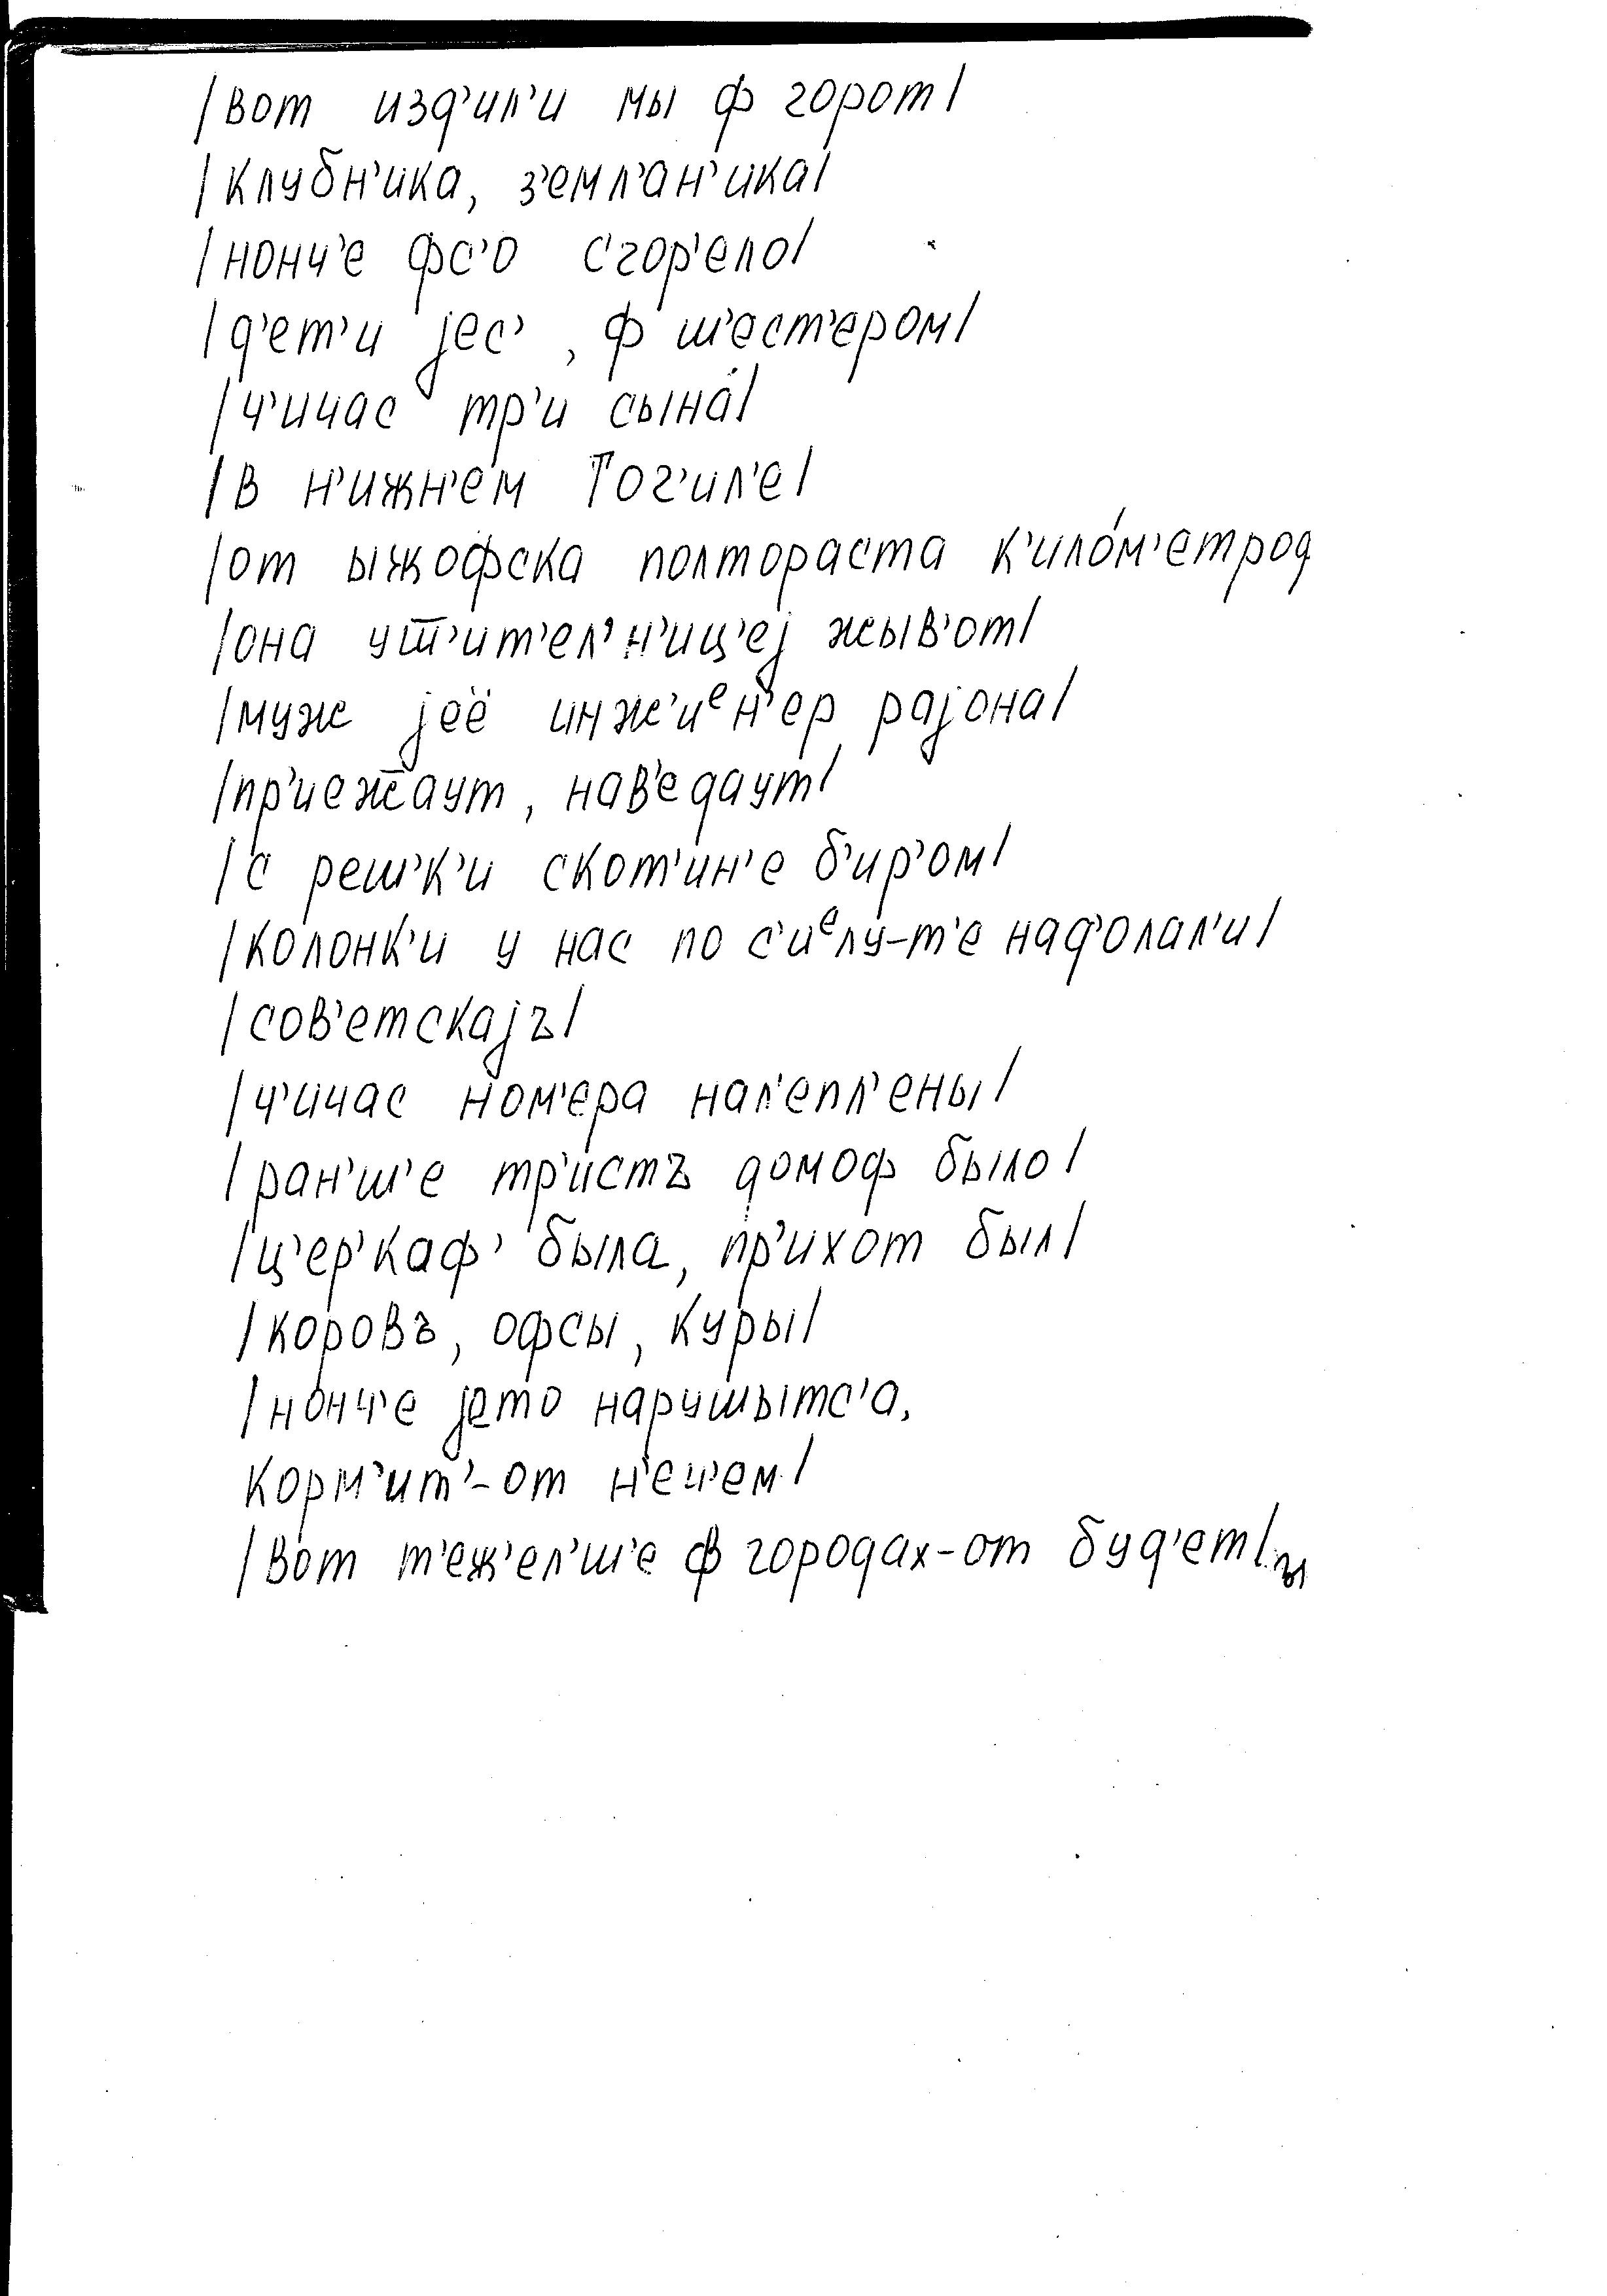 /вот изд'ил'и мы ф горот/
/клубн'ика, з'емл'ан'ика/
/нонч'е фс'о с'гор'ело/
/д'ет'и jес', ф ш'ест'ером/
/ч'ичас тр'и сына́/
/в н'ижн'ем Тог'ил'е/
/от ыжофска полтораста к'ило́м'етрод
/она ут̅'ит'ел'н'иц'еj жыв'от/
/муж jeё инж'иᵉн'ер раjона/
/пр'иеж̅аут, нав'едаут/
/с реш'к'и скот'ин'е б'ир'ом/
/колонк'и у нас по с'иᵉлу-т'е над'олал'и/
/сов'етскаjъ/
/ч'ичас ном'ера нал'епл'ены/
/ран'ш'е тр'истъ домоф было/
/ц'ер'каф' была, пр'иход был/
/коровъ, офсы, куры/
/нонч'е jето нарушытс'а,
корм'ит'-от н'еч'ем/
/вот т'еж'ел'ш'е ф городах-от буд'ет/